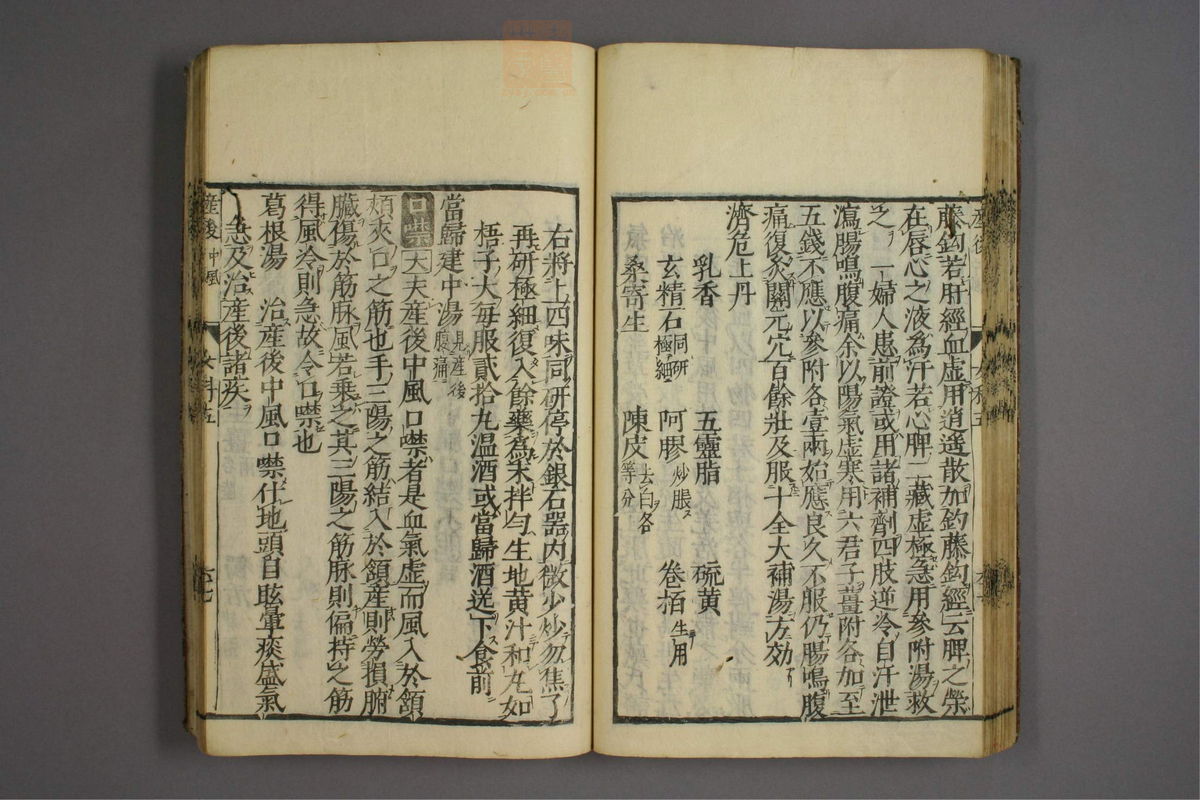 藤鈎若肝經血虛用逍遥散加釣藤鈎經云脾之榮
在唇心之液為汗若心脾二藏虛極急用參附湯救
之 一婦人患前證或用諸補劑四肢逆冷自汗泄
瀉腸鳴腹痛余以陽氣虛寒用六君子薑附各加至
五錢不應以參附各壹兩始應良久不服仍腸鳴腹
痛復灸關元穴百餘壯及服十全大補湯方効
濟危上丹
乳香 五靈脂 硫黄
玄精石同研極細 阿膠炒脹 卷栢生用
桑寄生 陳皮去白各等分
右將上四味同研停於銀石器内微少炒勿焦了
再研極細復入餘藥爲末拌匀生地黄汁和丸如
梧子大每服貳拾丸温酒或當歸酒送下食前
當歸建中湯見産後腹痛
口噤 大 夫産後中風口噤者是血氣虛而風入於頷
頰夾口之筋也手三陽之筋結入於頷産則勞損腑
臟傷於筋脉風若乗之其三陽之筋脉則偏持之筋
得風冷則急故令口噤也
葛根湯 治産後中風口噤仆地頭自眩暈痰盛氣
急及治産後諸疾
産後中風 女科五